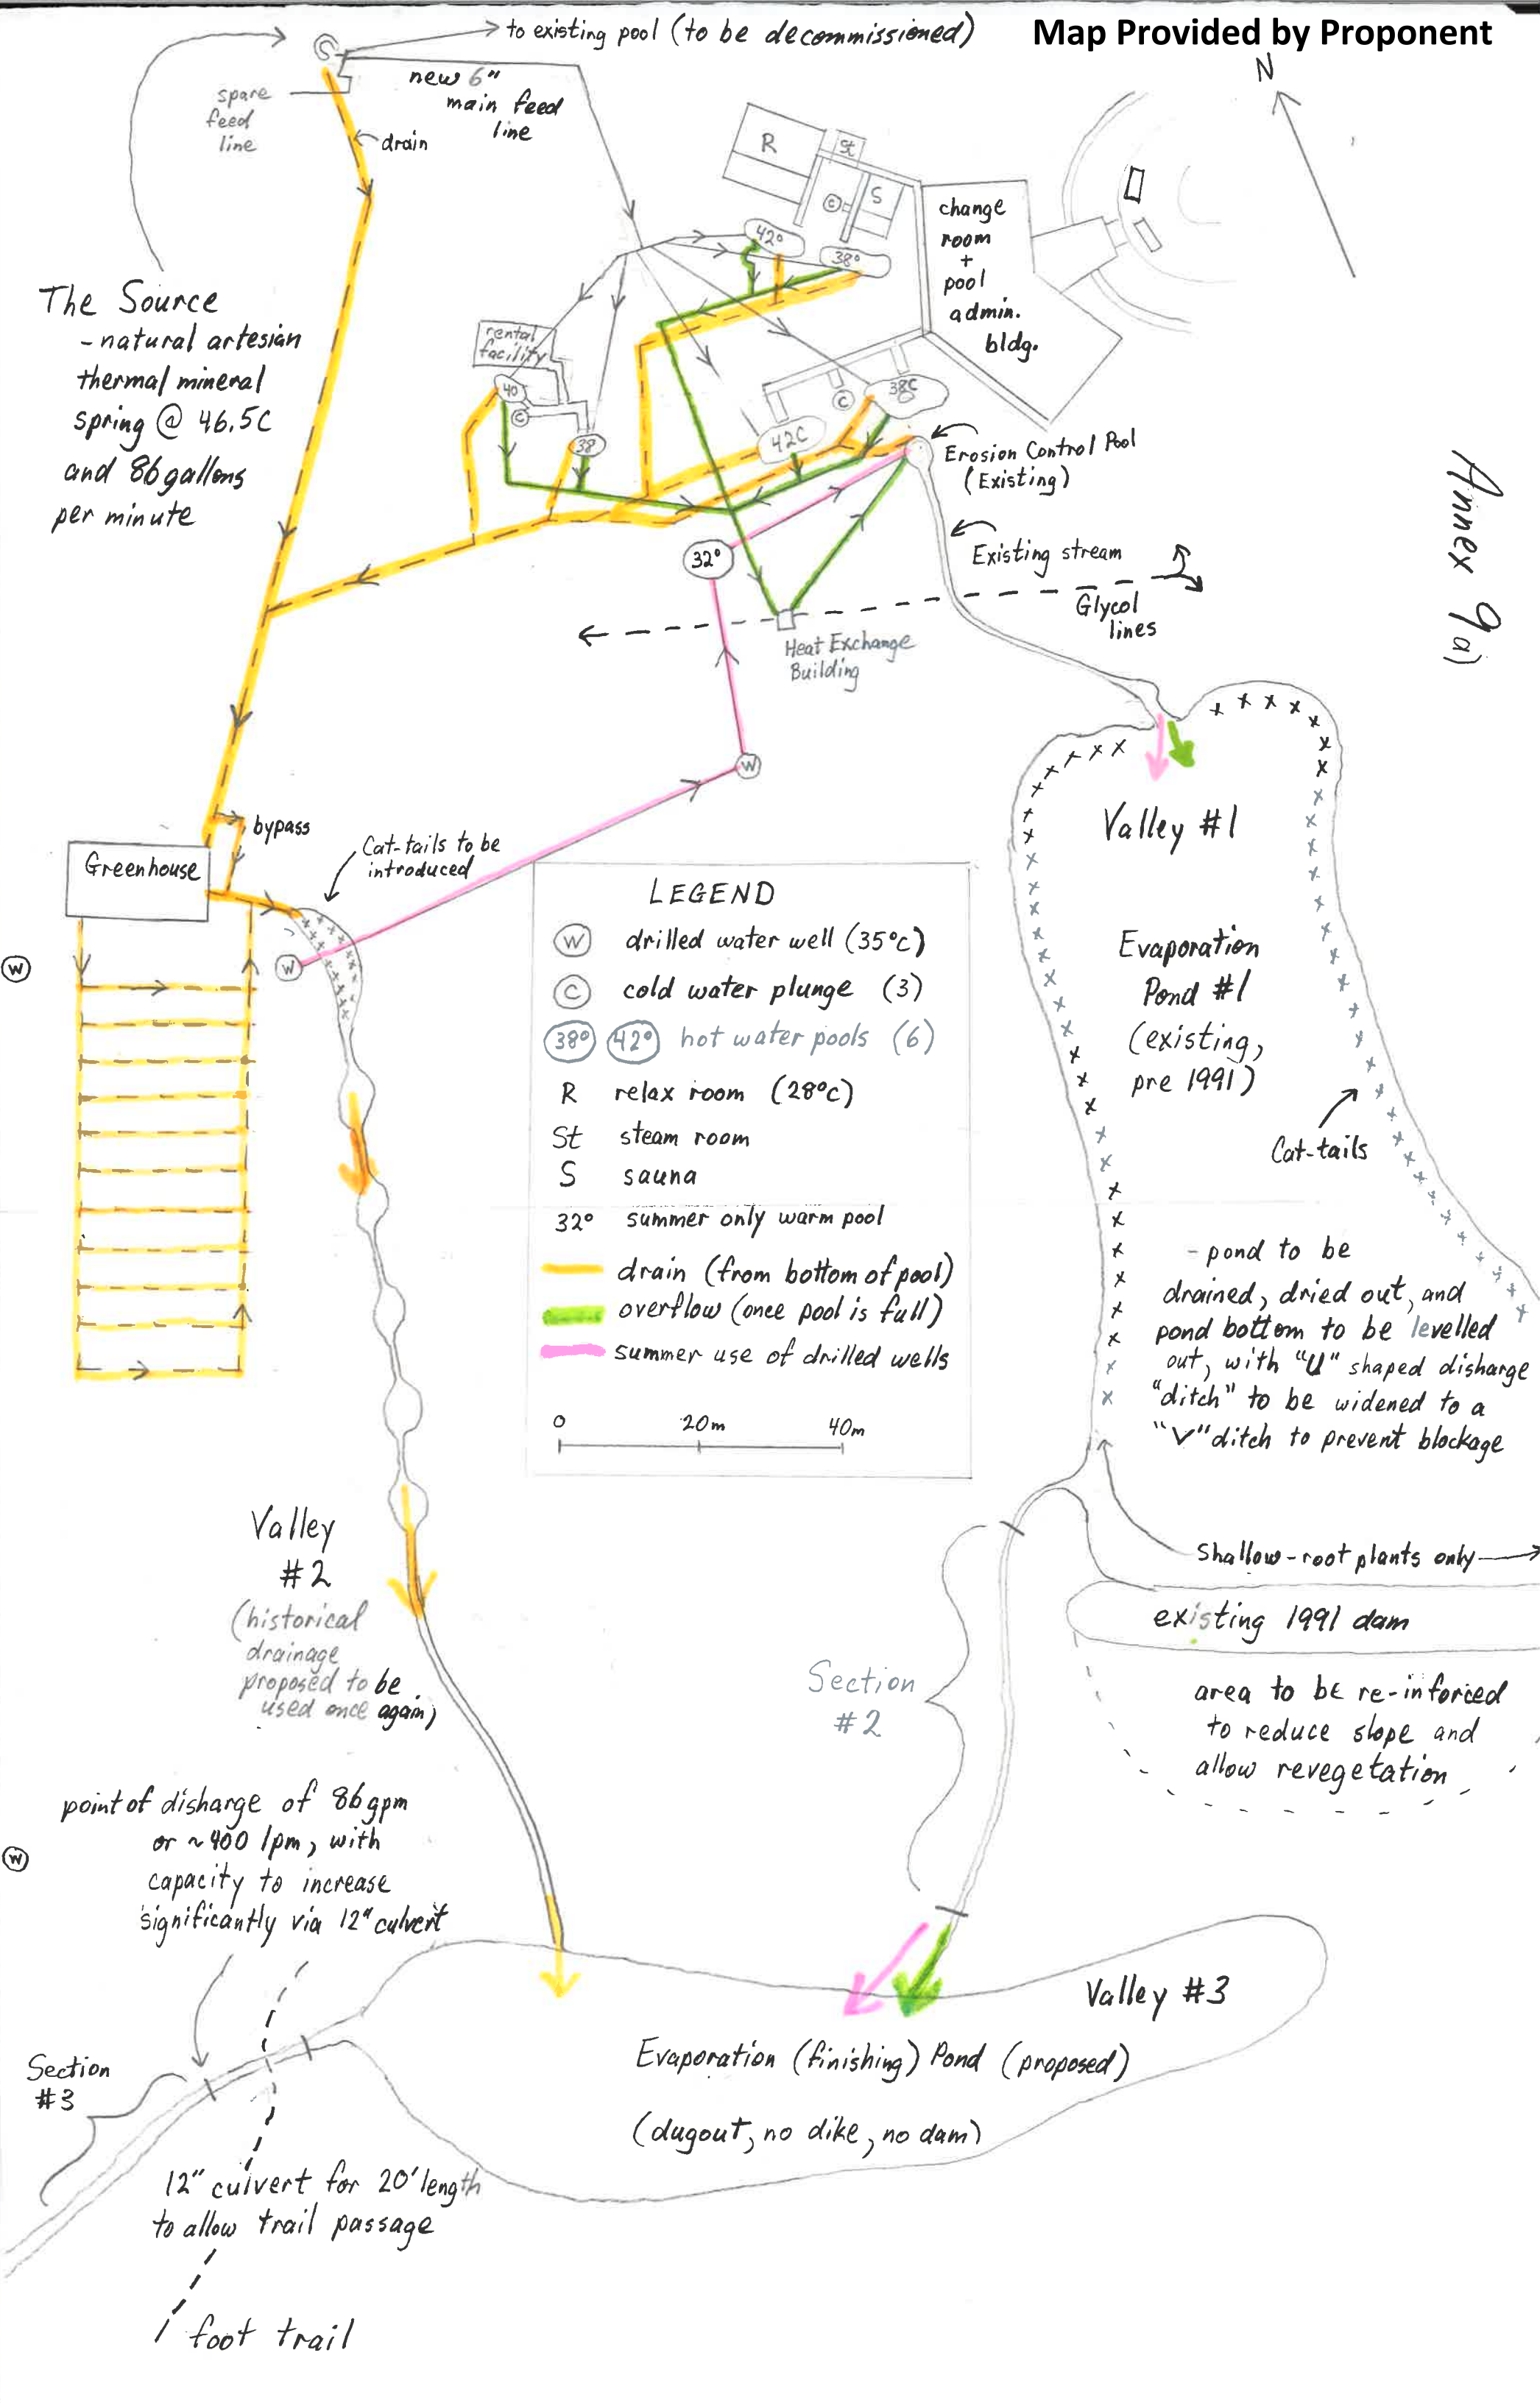 Map Provided by Proponent
to existing pool (to be decommissioned)
N
S
spare
feed
line
new 6"
main feed
line
drain
R
St
C
S
42°
38°
change
room
+
pool
admin.
bldg.
The Source
- natural artesian
thermal mineral
spring @ 46.5C
and 86 gallons
per minute
rental
facility
40
C
38
42C
C
38C
Erosion Control Pool
(Existing)
Existing stream
Glycol
lines
Annex 9a)
32°
Heat Exchange
Building
W
bypass
Greenhouse
Cat-tails to be
introduced
W
W
LEGEND
W drilled water well (35°c)
C cold water plunge (3)
38° 42° hot water pools (6)
R relax room (28°c)
St steam room
S sauna
32° summer only warm pool
drain (from bottom of pool)
overflow (once pool is full)
summer use of drilled wells
0 20m 40m
Valley #1
Evaporation
Pond #1
(existing,
pre 1991)
Cat-tails
- pond to be
drained, dried out, and
pond bottom to be levelled
out, with "U" shaped disharge
"ditch" to be widened to a
"V" ditch to prevent blockage
Shallow-root plants only
existing 1991 dam
area to be re-inforced
to reduce slope and
allow revegetation
Section
#2
Valley
#2
(historical
drainage
proposed to be
used once again)
point of disharge of 86gpm
or ~400 lpm, with
capacity to increase
significantly via 12" culvert
W
Valley #3
Evaporation (finishing) Pond (proposed)
(dugout, no dike, no dam)
Section
#3
12" culvert for 20' length
to allow trail passage
foot trail